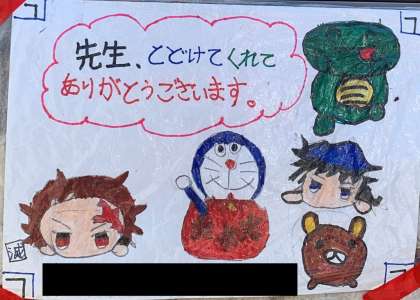 先生、とどけてくれて
ありがとうございます。
滅